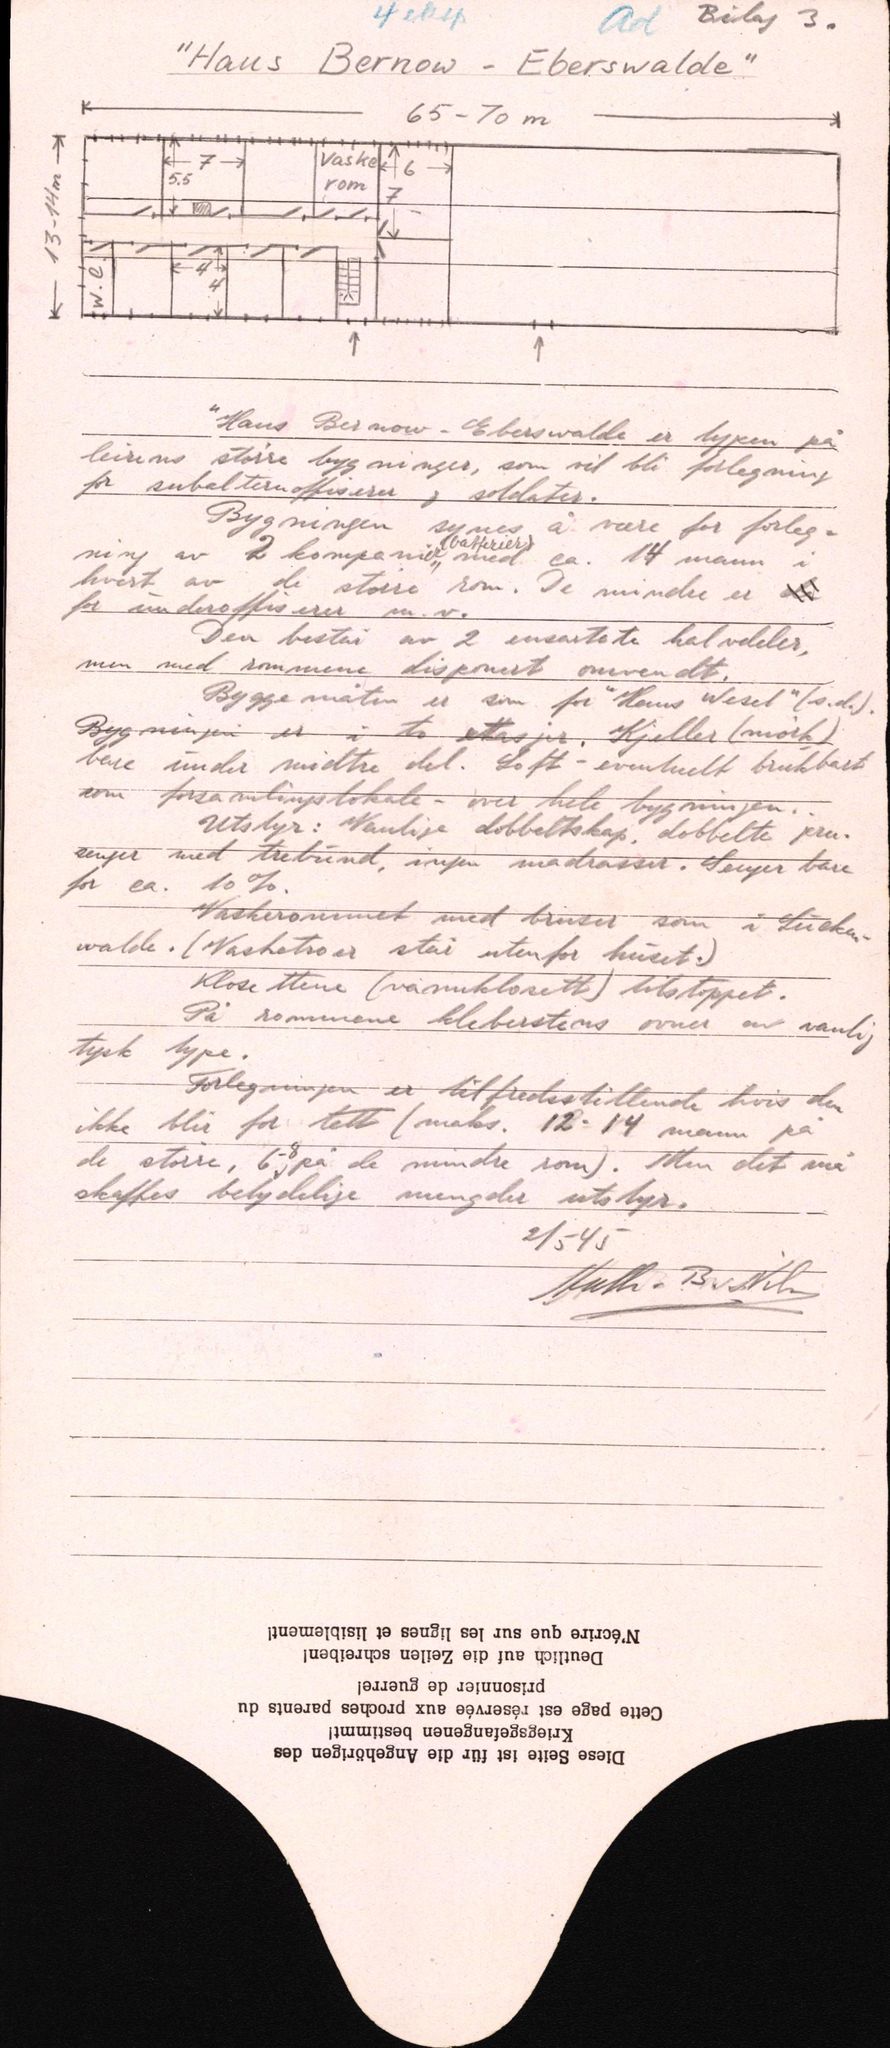 Ad Bilag 3.
"Haus Bernow - Eberswalde"
65-70 m
13-14m
7
5.5
Vaske
rom
6
7
W.C.
4
4
"Haus Bernow - Eberswalde er typen på
leirens större bygninger, som vil bli forlegning
for subalternoffiserer og soldater.
Bygningen synes å være for forleg-
ning av 2 kompanier (batterier) med ca. 14 mann i
hvert av de större rom. De mindre er
for underoffiserer m.v.
Den består av 2 ensartete halvdeler,
men med rommene disponert omvendt.
Byggemåten er som for "Haus Wesel" (s.d.).
Bygningen er i to etasjer. Kjeller (mörk)
bare under midtre del. Loft - eventuelt brukbart
som forsamlingslokale - over hele bygningen.
Utstyr: Vanlige dobbeltskap, dobbelte jern-
senger med trebund, ingen madrasser. Senger bare
for ca. 10%.
Vaskerommet med bruser som i Lucken-
walde. (Vasketroer står utenfor huset.)
Klosettene (vannklosett) tilstoppet.
På rommene klebersteins ovner av vanlig
tysk type.
Forlegningen er tilfredsstillende hvis den
ikke blir for tett (maks. 12-14 mann på
de större, 6-8 på de mindre rom). Men det må
skaffes betydelige mengder utstyr.
2/5 45
Diese Seite ist für die Angehörigen des
Kriegsgefangenen bestimmt!
Cette page est réservée aux proches parents du
prisonnier de guerre!
Deutlich auf die Zeilen schreiben!
N'écrire que sur les lignes et lisiblement!